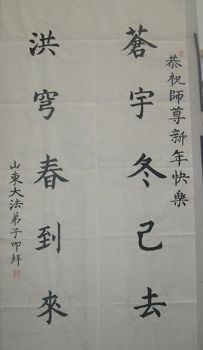 恭祝師尊新年快樂
蒼宇冬已去
洪穹春到來
山東大法弟子叩拜